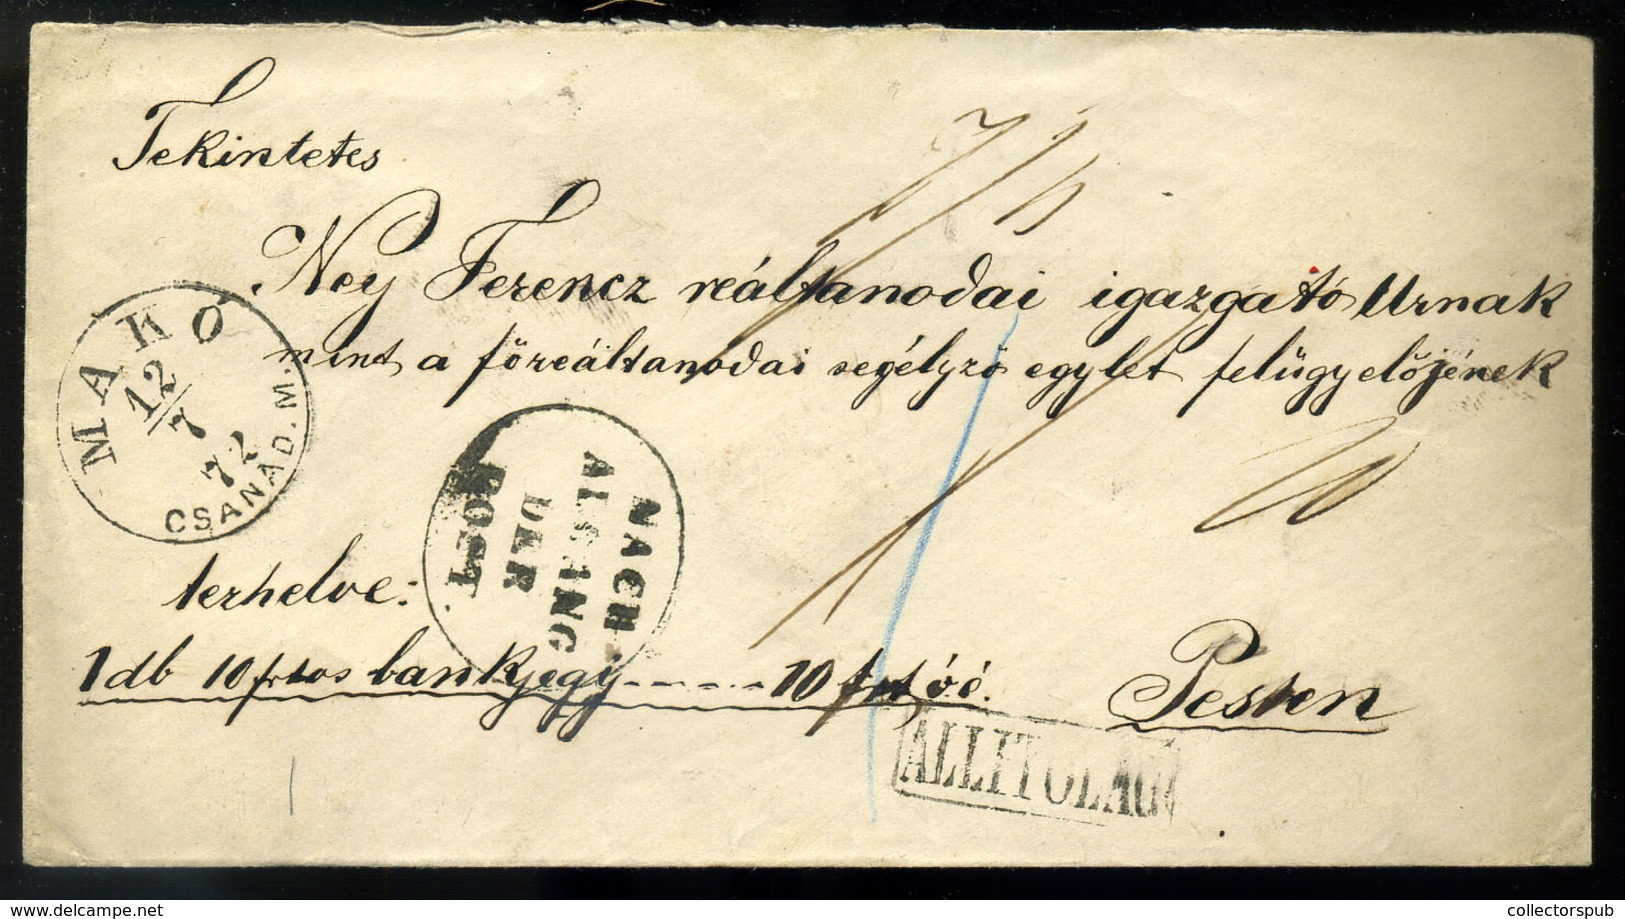 Tekintetes
Ney Ferencz reáltanodai igazgató Urnak
mint a főreáltanodai segélyző egylet felügyelőjének
MAKÓ
12/7
72
CSANÁD.M.
NACH
ALSING
DER
POST
terhelve:
1 db 10 frtos bankjegy ..... 10 frt óé.
Pesten
ALLITOLAG
collectorspub.com